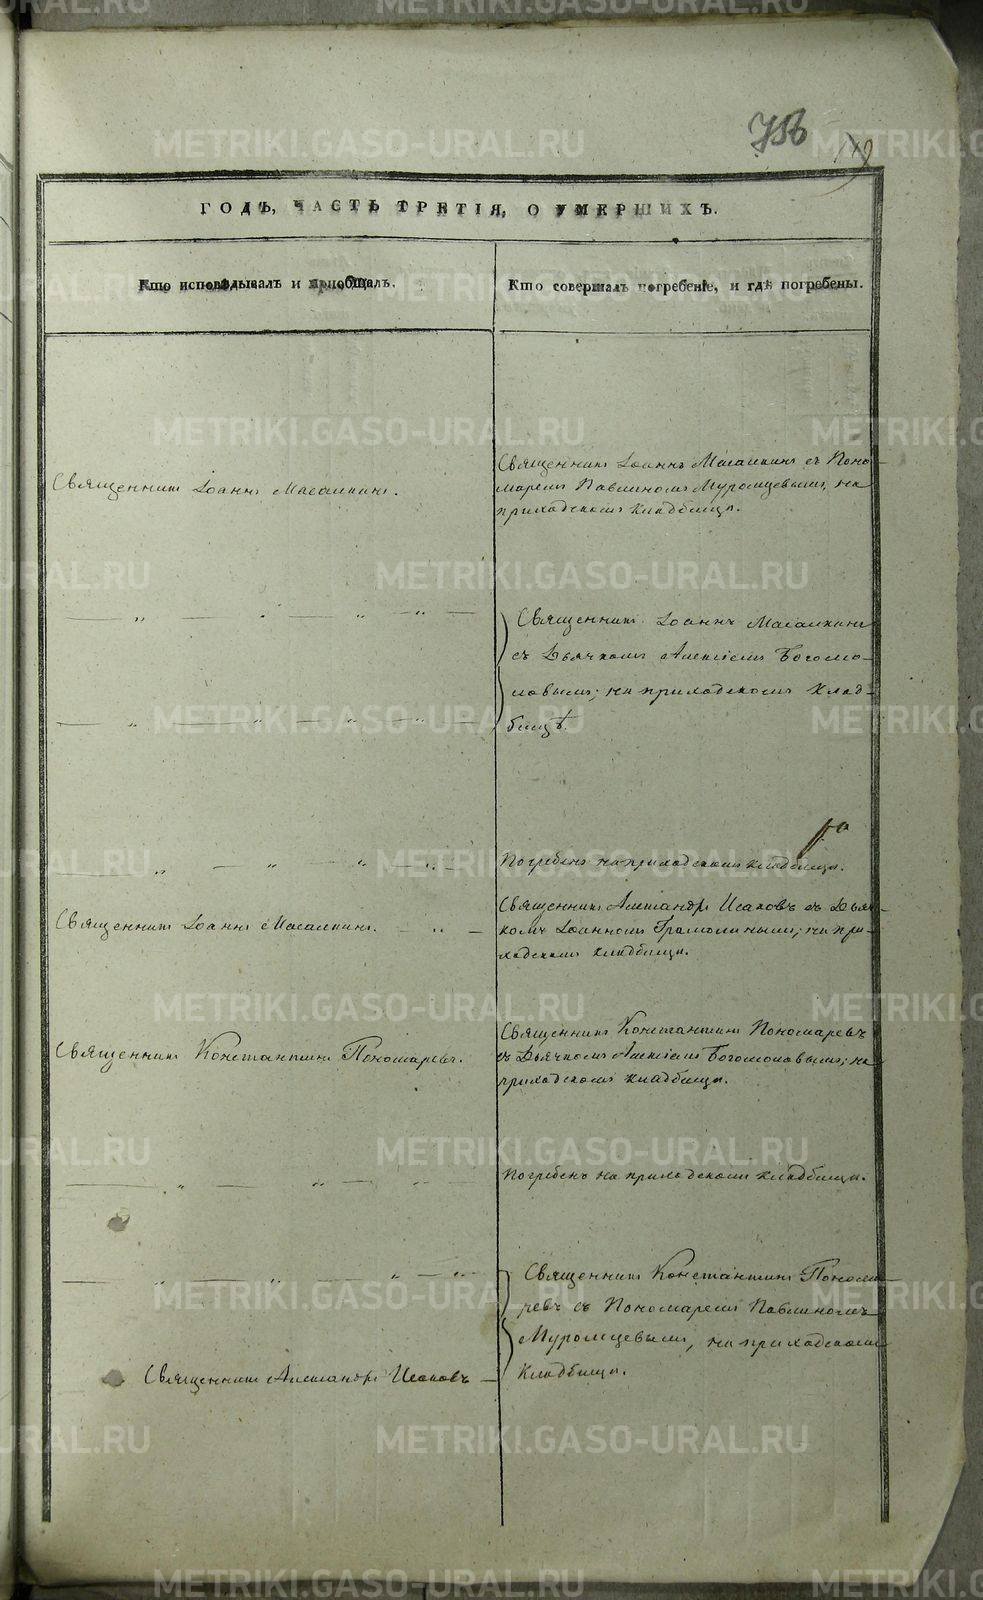 756
ГОДЪ, ЧАСТЬ ТРЕТІЯ, О УМЕРШИХЪ.
Кто исповѣдывалъ и пріобщалъ.
Кто совершалъ погребеніе, и гдѣ погребены.
Священникъ Іоаннъ Масалкинъ.
Священникъ Іоаннъ Масалкинъ съ Поно-
маремъ Павлиномъ Муромцевымъ, на
приходскомъ кладбищѣ.
— „ — „ — „ — „ —
Священникъ Іоаннъ Масалкинъ
съ Дьячкомъ Алексіемъ Богомо-
ловымъ; на приходскомъ клад-
бищѣ.
— „ — „ — „ — „ —
„ — „ — „ — „ —
Погребенъ на приходскомъ кладбищѣ.
Священникъ Іоаннъ Масалкинъ. — „ —
Священникъ Александръ Исаковъ съ Дьяч-
комъ Іоанномъ Грамолинымъ; на при-
ходскомъ кладбищѣ.
Священникъ Константинъ Пономаревъ.
Священникъ Константинъ Пономаревъ
съ Дьячкомъ Алексіемъ Богомоловымъ; на
приходскомъ кладбищѣ.
— „ — „ — „ —
Погребенъ на приходскомъ кладбищѣ.
— „ — „ — „ — „ —
Священникъ Константинъ Понома-
ревъ съ Пономаремъ Павлиномъ
Муромцевымъ, на приходскомъ
кладбищѣ.
Священникъ Александръ Исаковъ —
METRIKI.GASO-URAL.RU